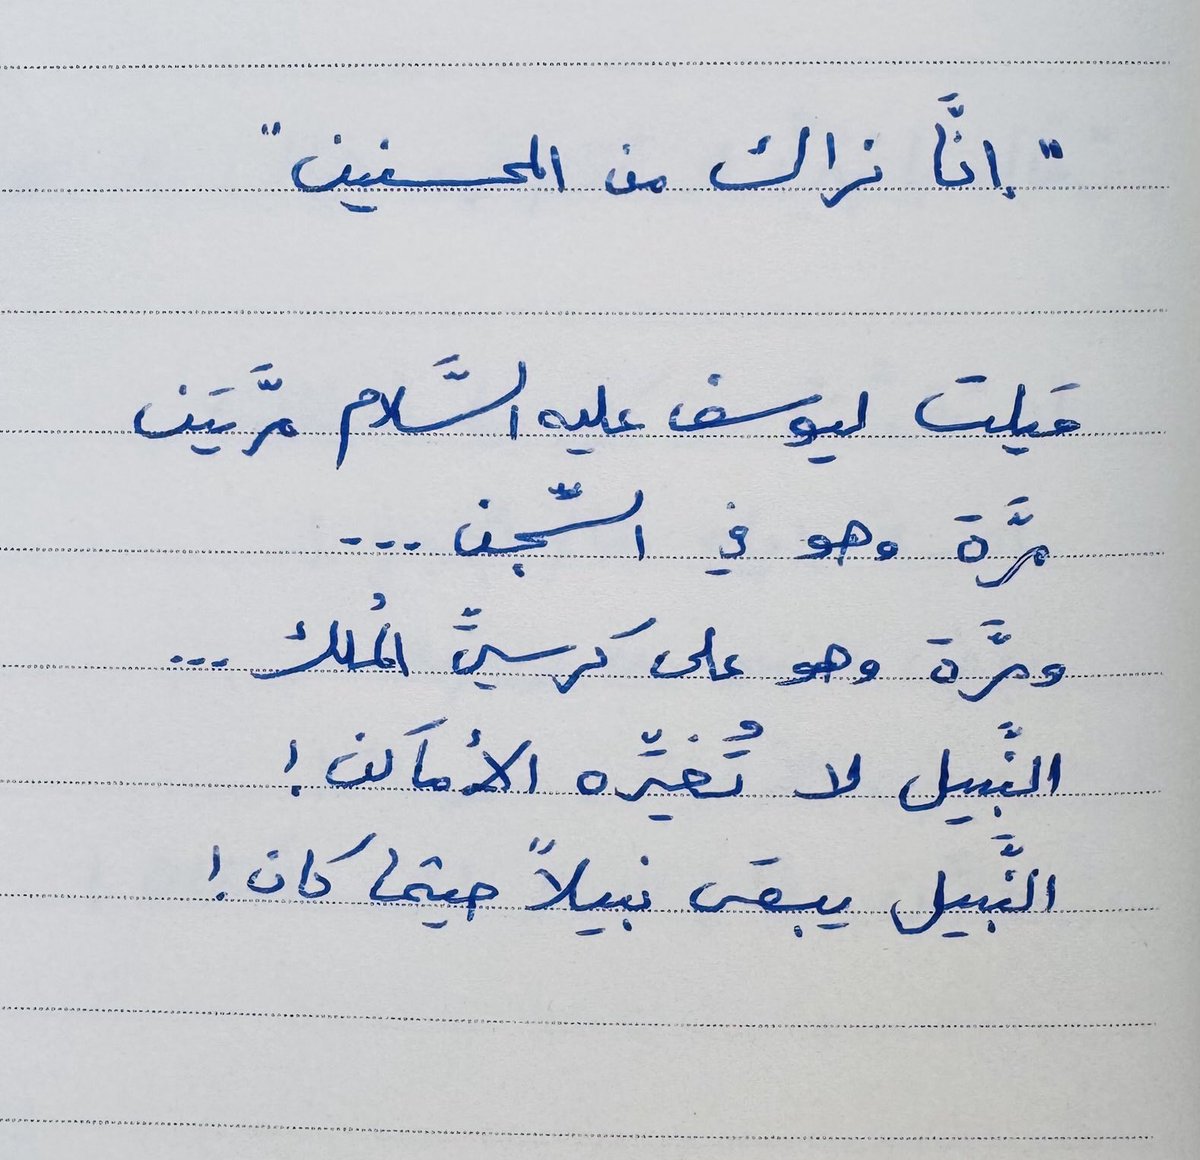 "إنَّا نراك من المحسنين"
قيلت ليوسف عليه السَّلام مرَّتين
مرَّة وهو في السِّجن ...
ومرَّة وهو على كرسيِّ المُلك ...
النَّبيل لا تُغيِّره الأماكن !
النَّبيل يبقى نبيلاً حيثما كان !